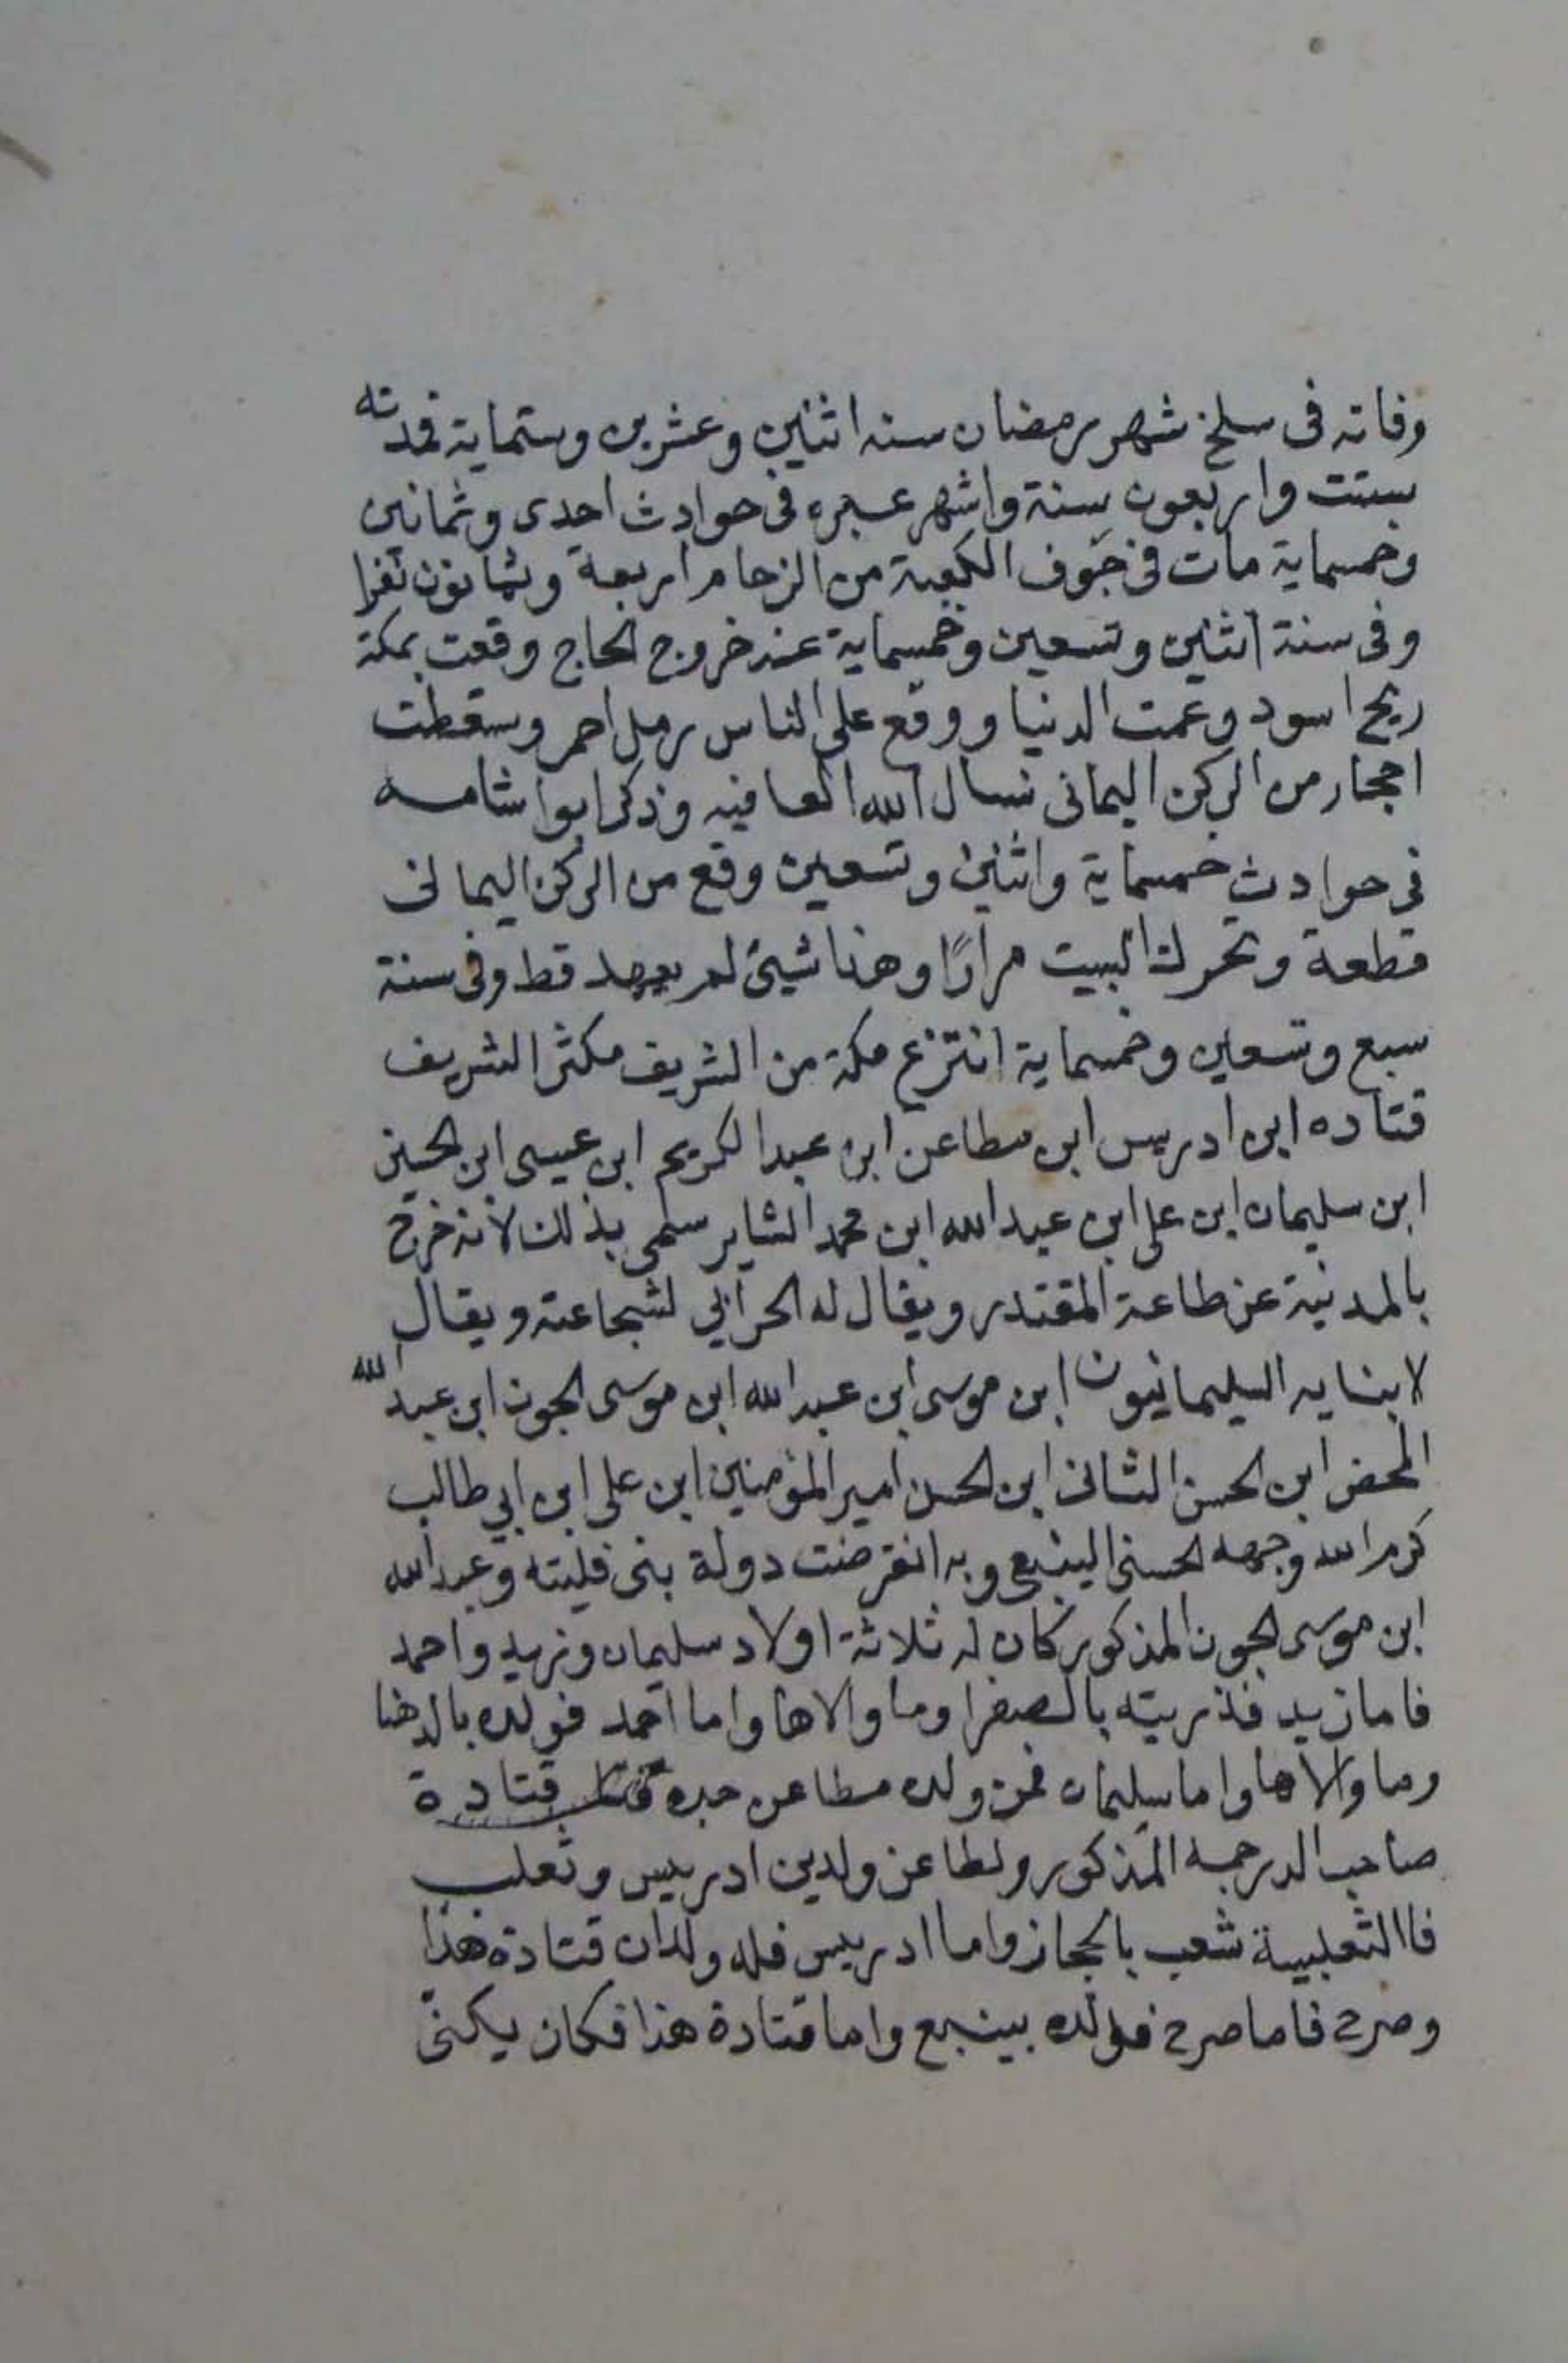 وفاته فى سلخ شهر رمضان سنه اثنين وعشرين وستماية فمدته
ستت واربعون سنة واشهر عبره فى حوادث احدى وثمانين
وخمسماية مات فى جوف الكعبة من الزحام اربعة وثمانون نفرا
وفى سنة اثنين وتسعين وخمسماية عند خروج الحاج وقعت بمكة
ريح اسود وعمت الدنيا ووقع على الناس رمل احمر وسقطت
احجار من الركن اليمانى نسال الله العافيه وذكر ابوا شامه
فى حوادث خمسماية واثنين وتسعين وقع من الركن اليمانى
قطعة وتحرك البيت مرارًا وهذا شيئ لم يعهد قط وفى سنة
سبع وتسعين وخمسماية انتزع مكة من الشريف مكثر الشريف
قتاده ابن ادريس ابن مطاعن ابن عبد الكريم ابن عيسى ابن الحسين
ابن سليمان ابن على ابن عبد الله ابن محمد الشاير سمى بذلك لانه خرج
بالمدنية عن طاعة المقتدر ويقال له الحرابي لشجاعته ويقال
لابنايه السليمانيون ابن موسى ابن عبد الله ابن موسى الجون ابن عبد الله
المحض ابن الحسن الثانى ابن الحسن امير المؤمنين ابن على ابن ابي طالب
كرم الله وجهه الحسنى الينبعى وبه انقرضت دولة بنى فليته وعبد الله
ابن موسى الجون المذكور كان له ثلاثة اولاد سليمان وزيد واحمد
فاما زيد فذريته بالصفرا وما والاها واما احمد فولده بالدهنا
وما والاها واما سليمان فمن ولده مطاعن جده قتادة
صاحب الدرجمه المذكور ولطاعن ولدين ادريس وثعلب
فاالثعلبية شعب بالحجاز واما ادريس فله ولدان قتادة هذا
وصرح فاما صرح فولده بينبع واما قتادة هذا فكان يكنى